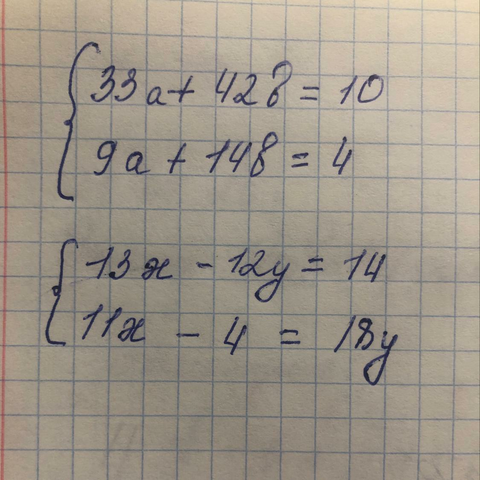 33a + 42b = 10
9a + 14b = 4
13x - 12y = 14
11x - 4 = 18y